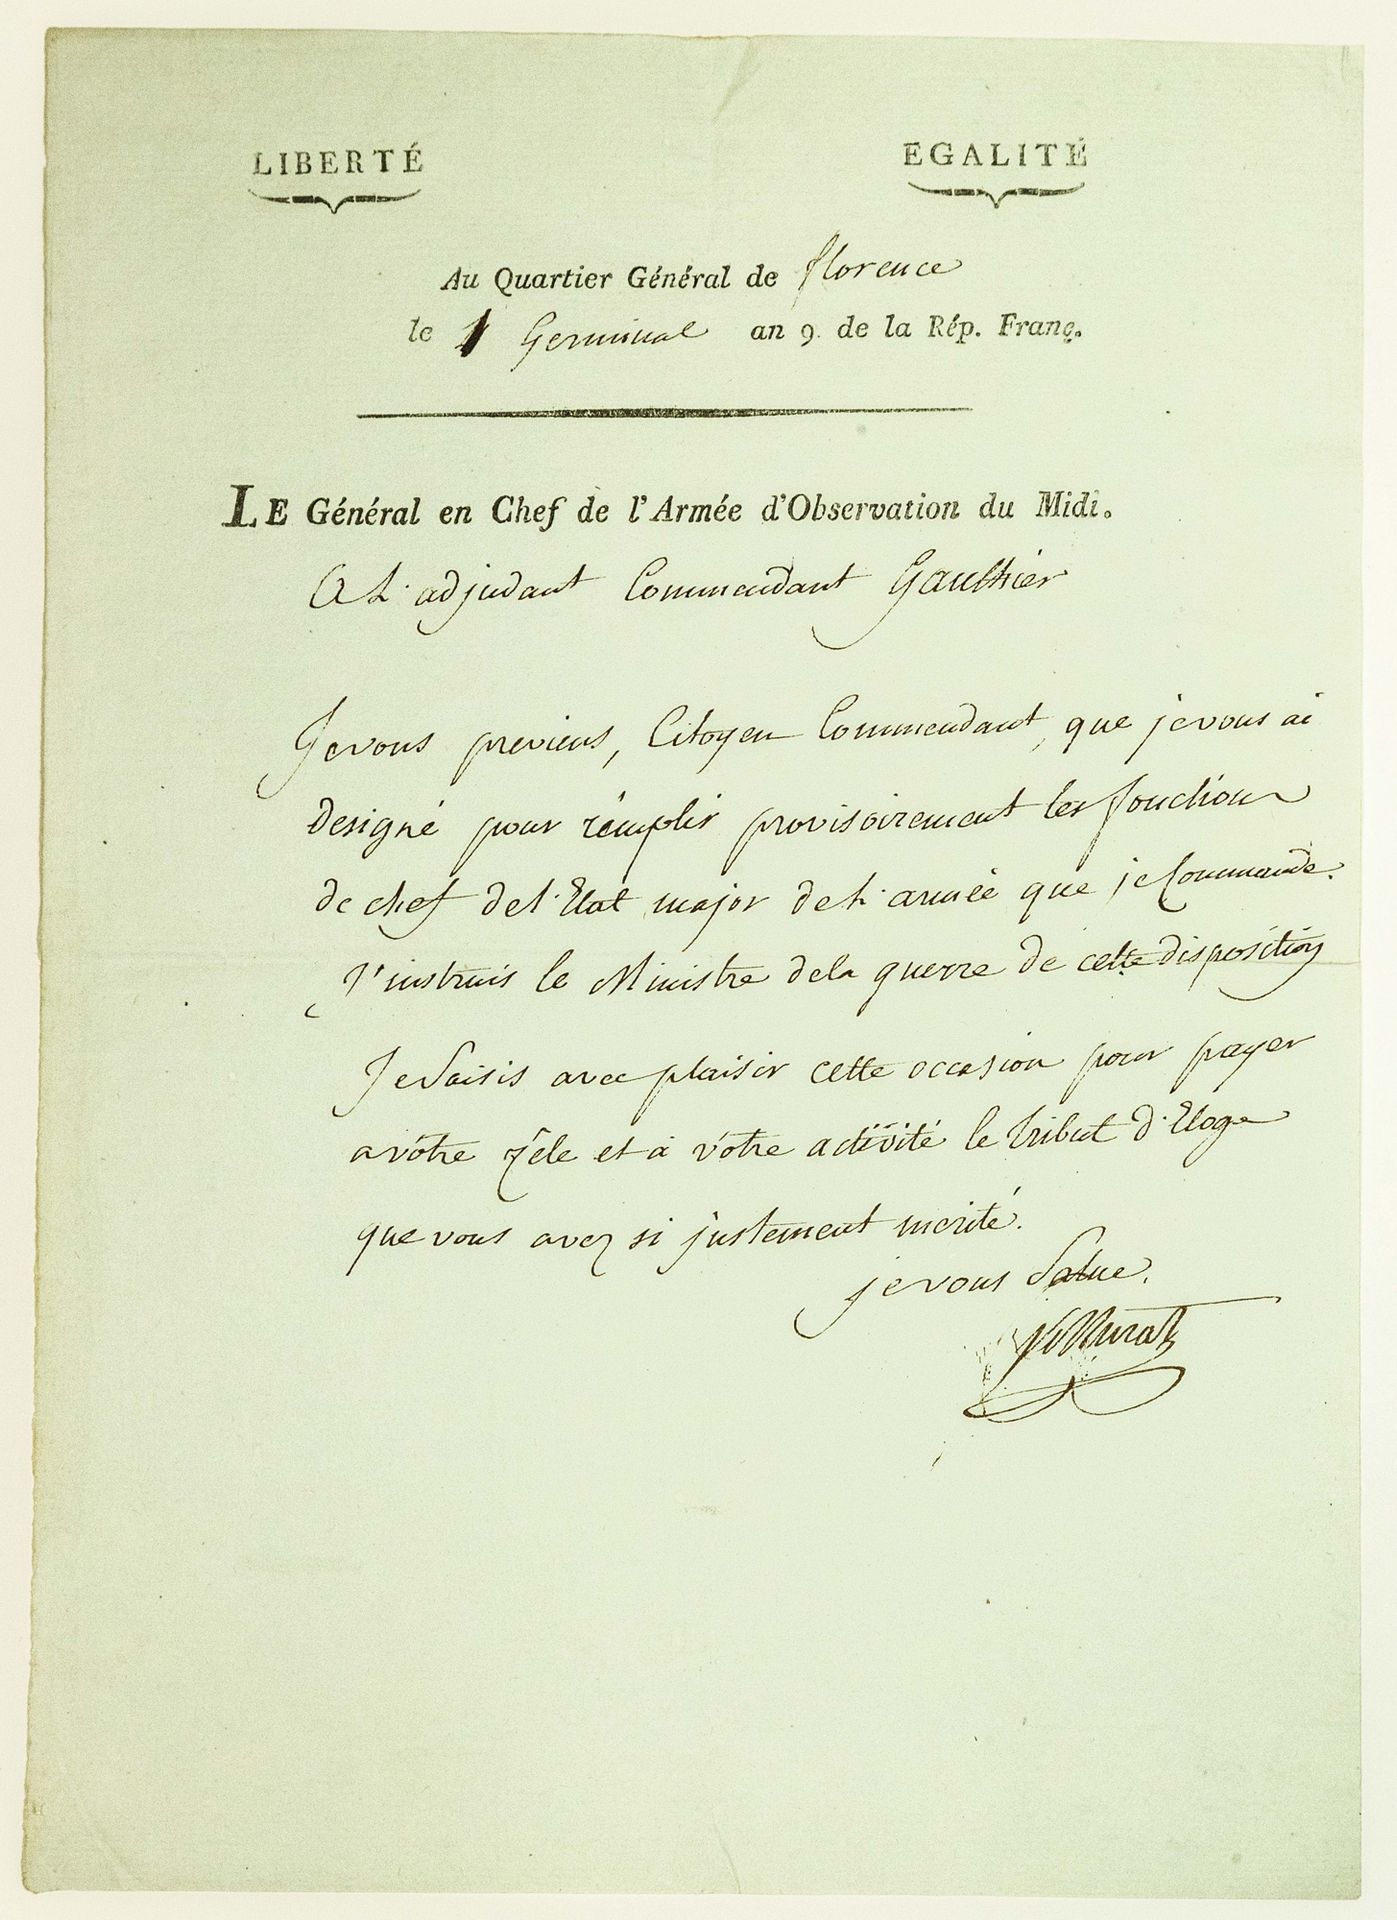 LIBERTÉ EGALITÉ
Au Quartier Général de florence
le 1 Germinal an 9. de la Rép. Franç.
LE Général en Chef de l'Armée d'Observation du Midi.
A L'adjudant Commendant Gaulthier
Je vous previens, Citoyen Commendant, que je vous ai
designé pour rémplir provisoirement les fonctions
de chef de l'Etat major de l'armée que je Commande.
J'instruis le Ministre de la guerre de cette disposition
Je Saisis avec plaisir cette occasion pour payer
a vôtre zêle et à vôtre activité le tribut d'Eloge
que vous avez si justement merité.
je vous Salue.
Murat